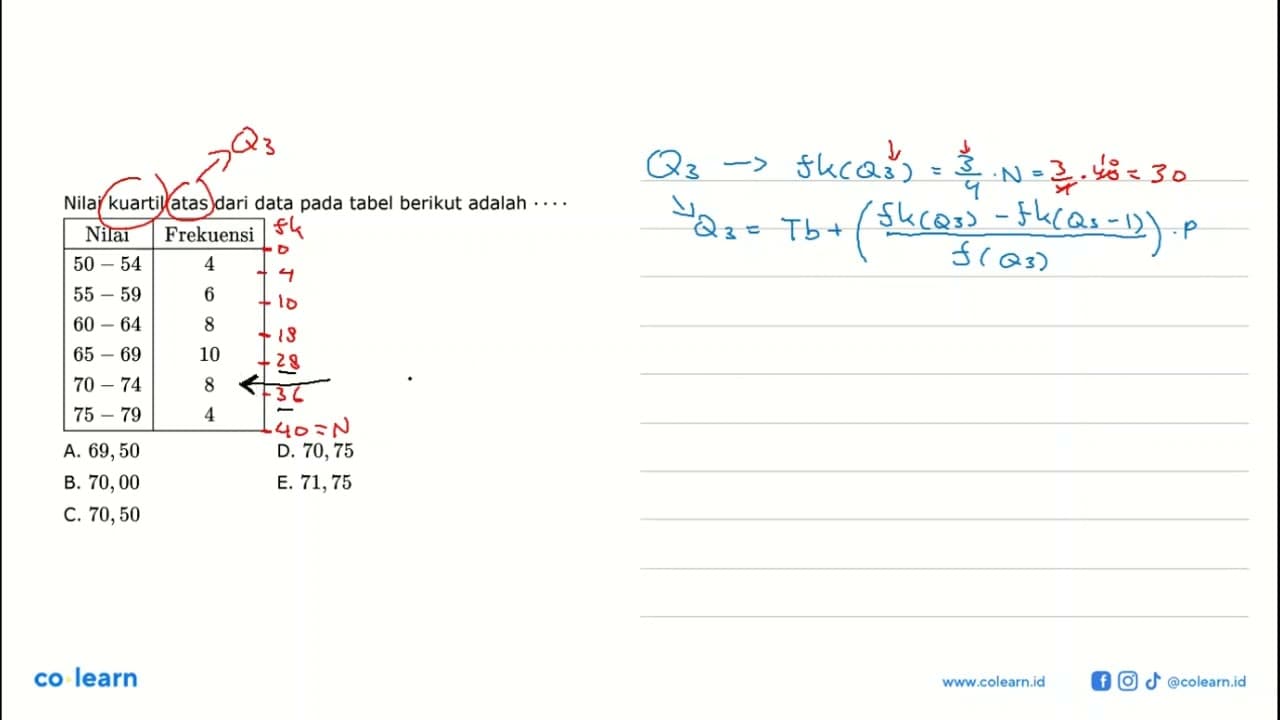 Q3
Nilai kuartil atas dari data pada tabel berikut adalah ....
Nilai Frekuensi fk
0
50 – 54 4
4
55 – 59 6
10
60 – 64 8
18
65 – 69 10
28
70 – 74 8
36
75 – 79 4
40 = N
A. 69,50 D. 70,75
B. 70,00 E. 71,75
C. 70,50
Q3 → fk(Q3) = 3/4 . N = 3/4 . 40 10 = 30
Q3 = Tb + (fk(Q3) - fk(Q3-1) / f(Q3)) . P
co learn
www.colearn.id @colearn.id